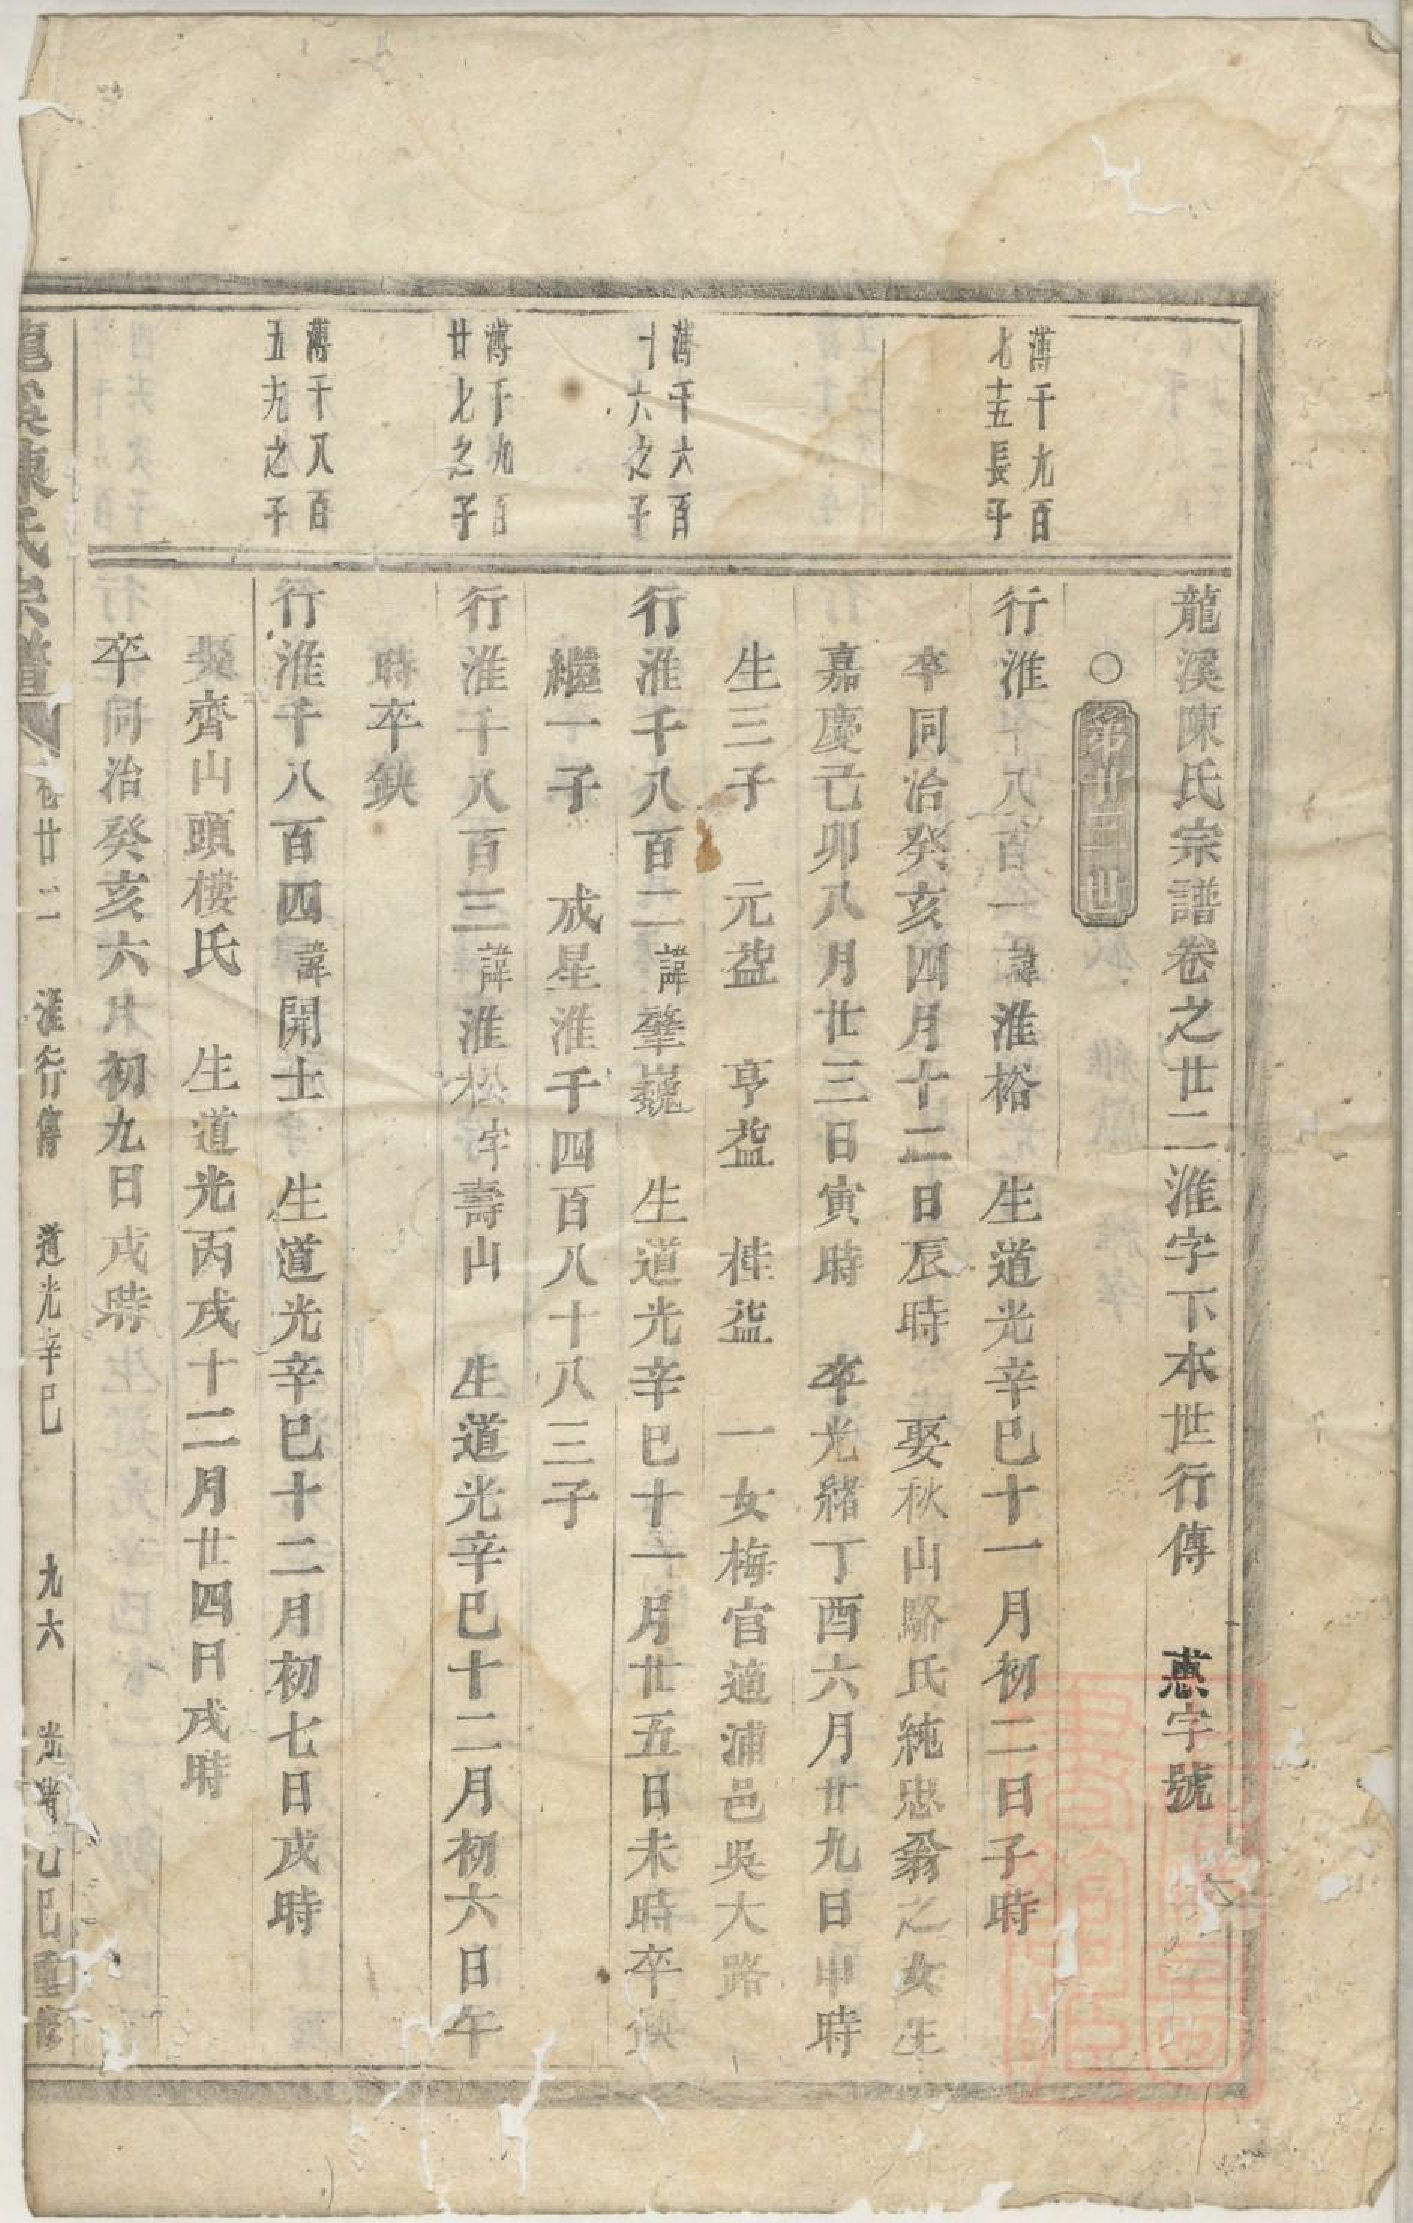 龍溪陳氏宗譜卷之廿二淮字下本世行傳　惪字號
○第廿三世
薄千九百
七十五長子
行淮千八百一諱淮裕　生道光辛巳十一月初二日子時
卒同治癸亥四月十二日辰時　娶秋山駱氏純忠翁之女生
嘉慶己卯八月廿三日寅時　卒光緒丁酉六月廿九日申時
生三子　元益　亨益　桂益　一女梅官適浦邑吳大路
薄千六百
十六之子
行淮千八百二諱肇巍　生道光辛巳十一月廿五日未時卒缺
繼一子　成星淮千四百八十八三子
薄千九百
廿七之子
行淮千八百三諱淮松字壽山　生道光辛巳十二月初六日午
時卒缺
薄千八百
五九之子
行淮千八百四諱開士　生道光辛巳十二月初七日戌時
娶齊山頭樓氏　生道光丙戌十二月廿四日戌時
卒同治癸亥六月初九日戌時
龍溪陳氏宗譜　卷廿二　淮行傳　道光辛巳　九六　光緒乙巳重修